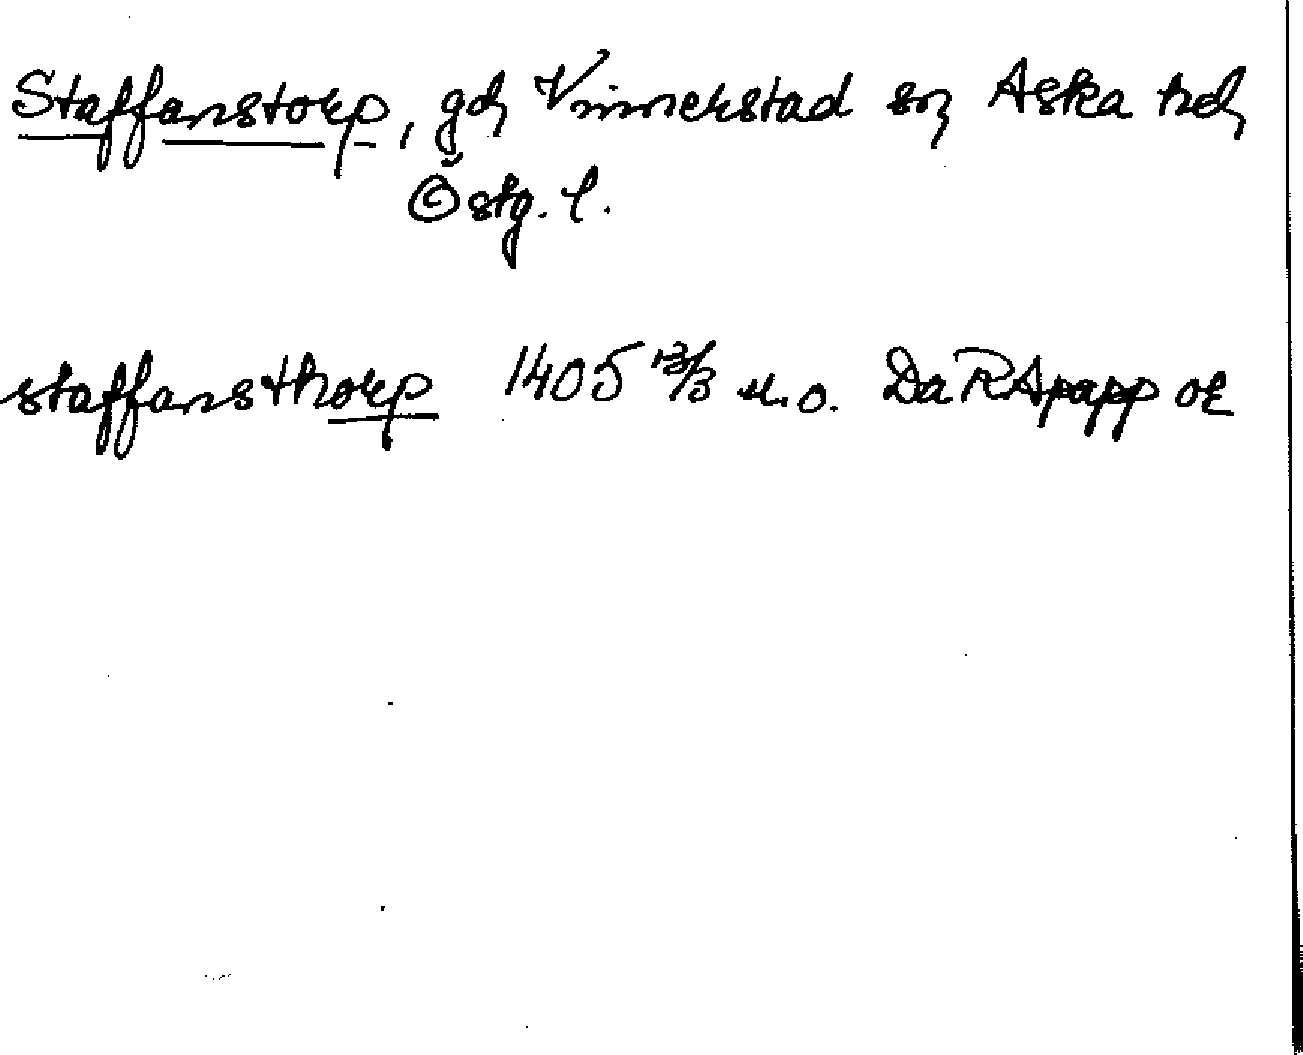 Staffanstorp, gd, Vinnerstad sn, Aska hd,
Östg. l.
staffansthorp 1405 13/3 u.o. Da RA papp or